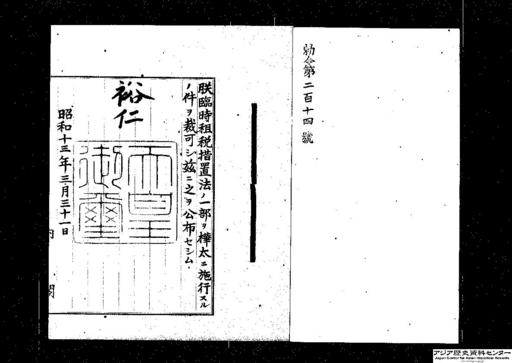 勅令第二百十四號
朕臨時租税措置法ノ一部ヲ樺太ニ施行スル
ノ件ヲ裁可シ茲ニ之ヲ公布セシム
裕仁
天皇御璽
昭和十三年三月三十一日
内閣
アジア歴史資料センター
Japan Center for Asian Historical Records